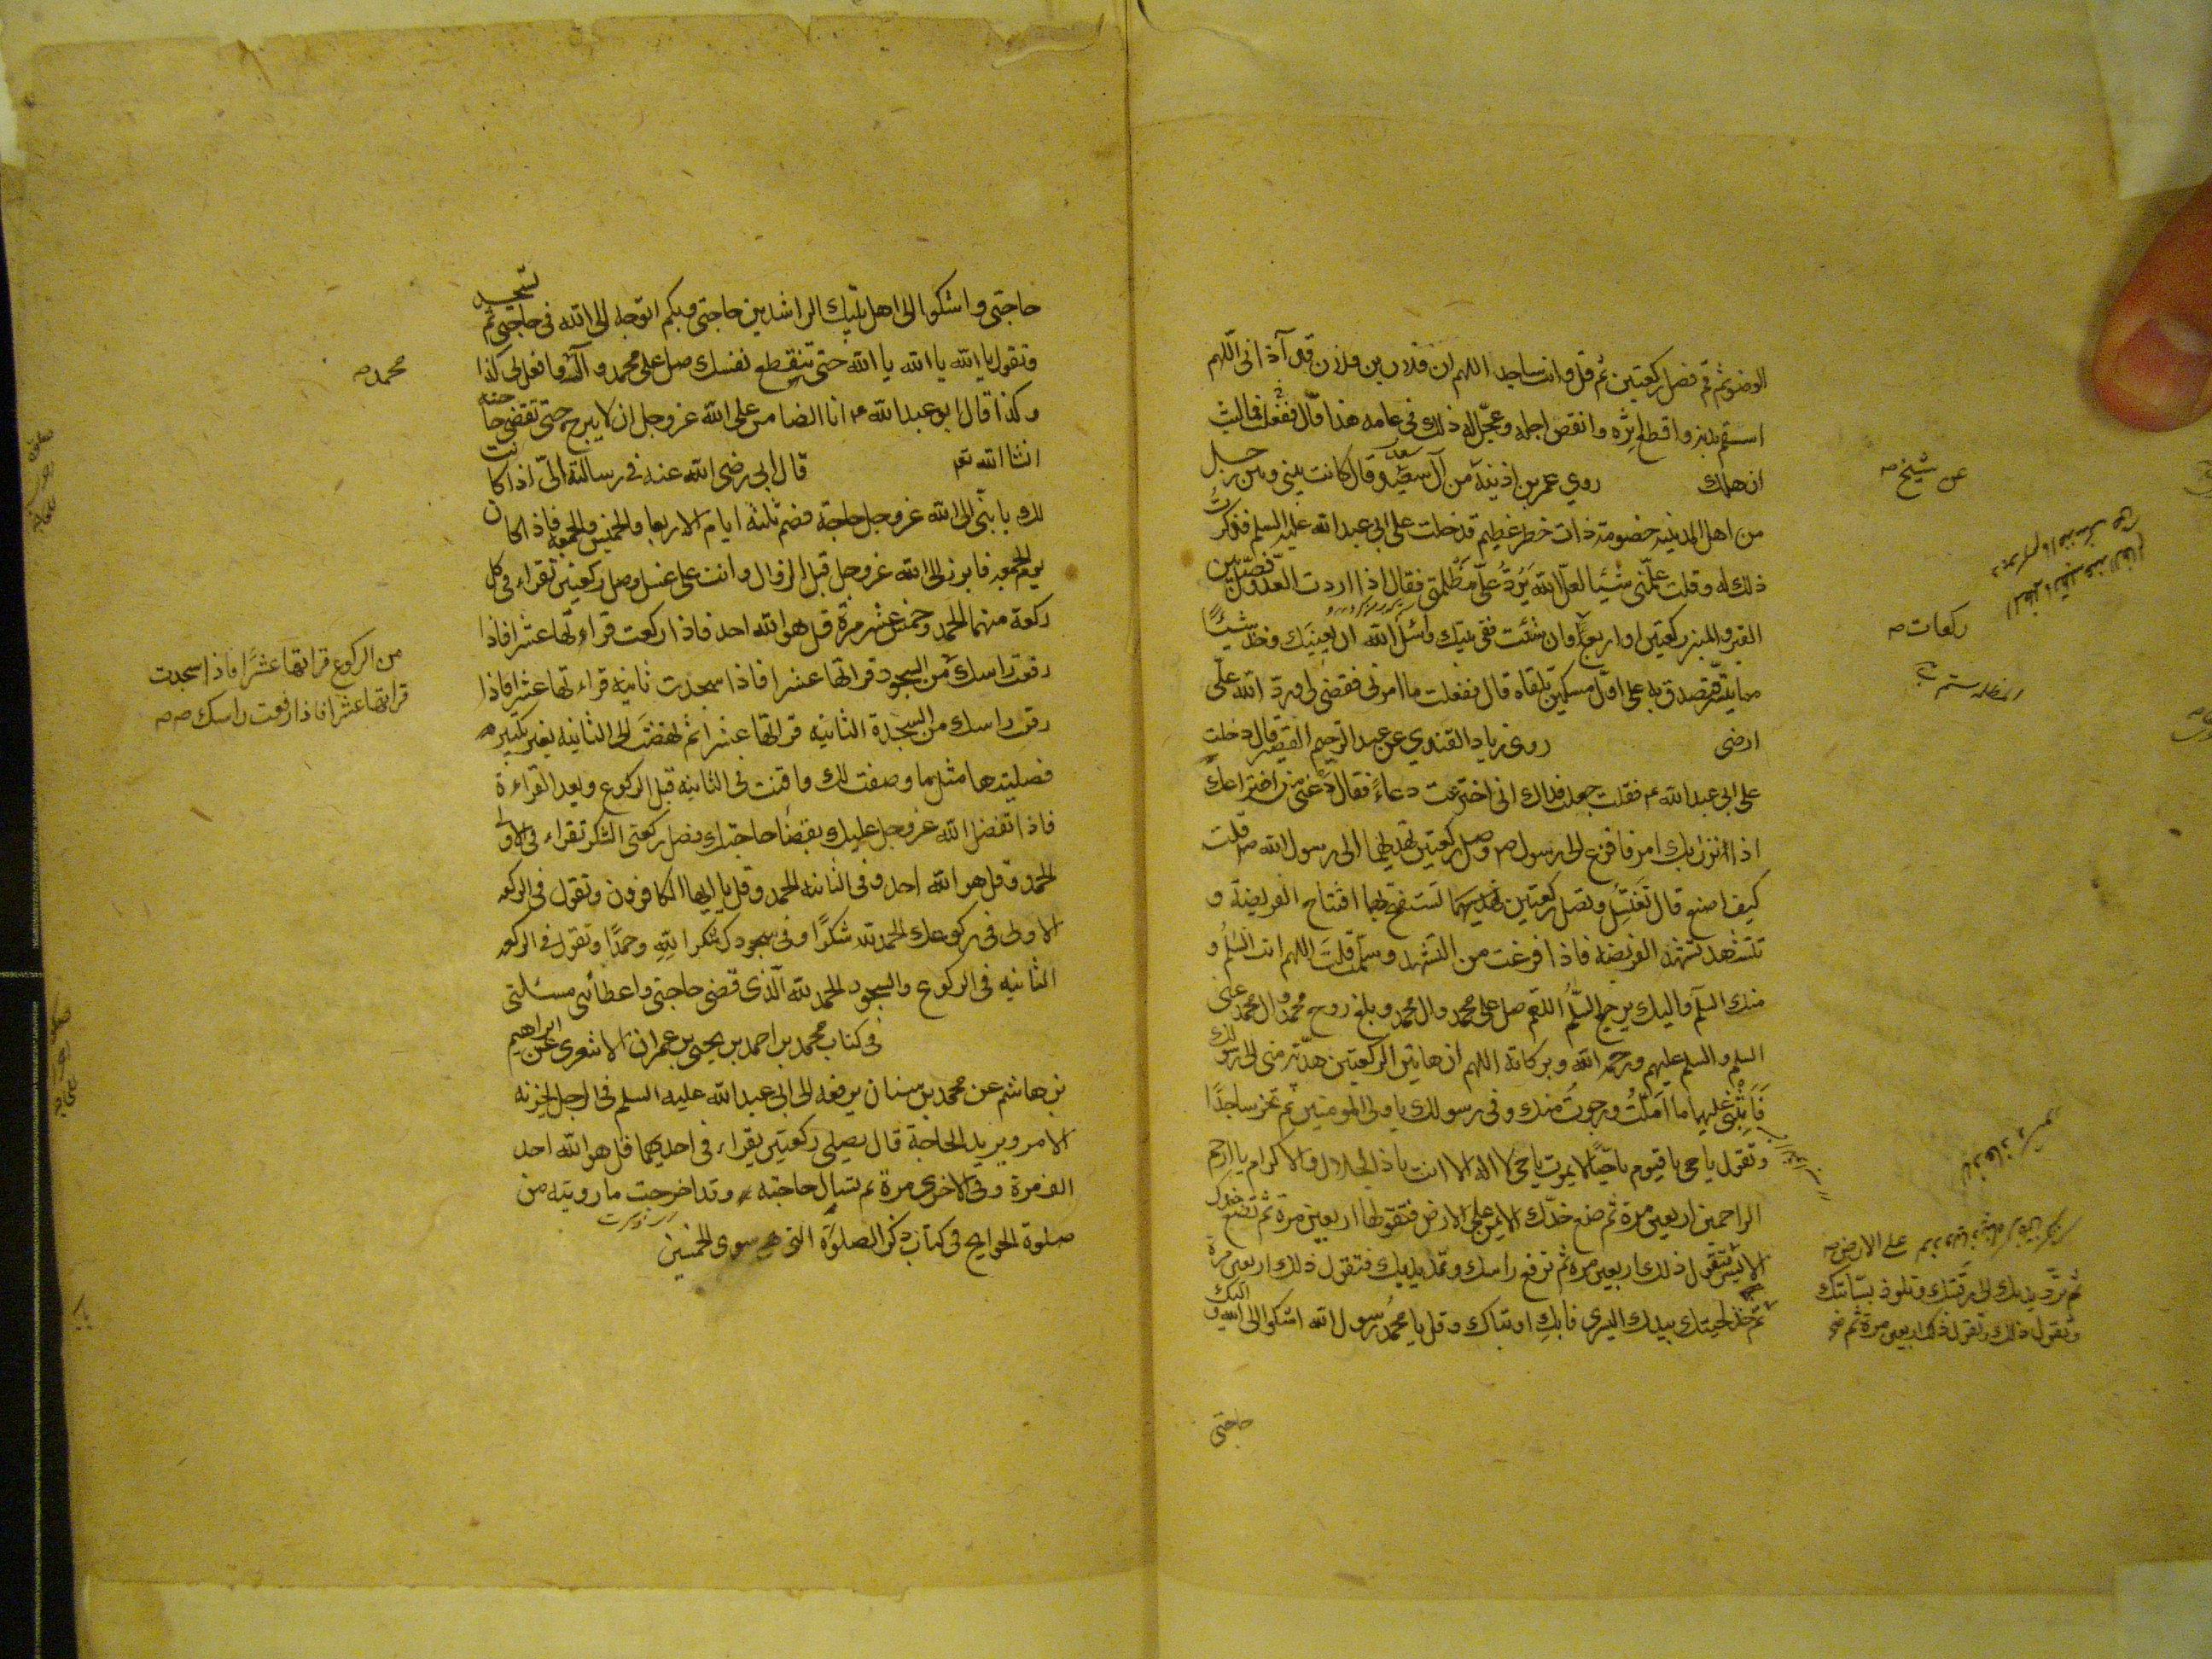 الوضوء ثم قم فصل ركعتين ثم قل وانت ساجد اللهم ان فلان بن فلان قد آذانى اللهم
اسقم بدنه واقطع اثره وانقص اجله وعجّل له ذلك فى عامه هذا قال ففعلت فما لبث
ان هلك روي عمر بن اذينة عن شيخ من آل سعد قال كانت بينى وبين رجل
من اهل المدينه خصومة ذات خطر عظيم فدخلت على ابى عبدالله عليه السلم فذكرت
ذلك له وقلت علّمنى شيئا لعلّ الله يَرُدُّ علىّ مظلمتى فقال اذا اردت العدو فصلّ بين
القبر والمنبر ركعتين او اربع ركعات وان شئت ففى بيتك واسئل الله ان يعينك وخذ شيئًا
مما تيسّر فتصدق به على اوّل مسكين تلقاه قال ففعلت ما امرنى فقضى لى وردّ الله علىّ
ارضى روى زياد القندي عن عبد الرحيم القصير قال دخلت
على ابى عبدالله ع فقلت جعلت فداك انى اخترعت دعاءً فقال دعنى من اختراعك
اذا نزل بك امر فافزع الى رسول الله ص وصل ركعتين تهديهما الى رسول الله ص قلت
كيف اصنع قال تغتسل وتصلى ركعتين تستفتح بهما افتتاح الفريضة و
تتشهد تشهد الفريضه فاذا فرغت من التشهد وسلمت قلت اللهم انت السّلم و
منك السلم واليك يرجع السّلم اللهم صل على محمد وال محمد وبلغ روح محمد وال محمد عنى
السلم والسلم عليهم ورحمة الله وبركاته اللهم ان هاتين الركعتين هديّة منى الى رسولك
فَأثِبْنى عليهما ما امّلتُ ورجوتُ منك وفى رسولك يا ولى المومنين ثم تخر ساجدًا
وتقول يا حى يا قيوم يا حيًّا لا يموت يا حى لا اله الا انت يا ذا الجلال والاكرام يا ارحم
الراحمين اربعين مرة ثم ضع خدّك الايمن على الارض فتقولها اربعين مرة ثم تضع خدك
الايسر فتقول ذلك اربعين مرة ثم ترفع راسك وتمدّ يديك فتقول ذلك اربعين مرة
ثم خذ لحيتك بيدك اليسرى فابك او تباك وقل يا محمد يا رسول الله اشكوا الى الله واليك
حاجتى
عن شيخ صه
ركعات صه
على الارض صه
ثم تردّ يديك الى رقبتك وتلوذ بسبّابتك
وتقول ذلك اربعين مرة ثم صه
حاجتى واشكوا الى اهل بيتك الراشدين حاجتى وبكم اتوجه الى الله فى حاجتى ثم تسجد
وتقول يا الله يا الله يا الله حتى ينقطع نفسك صل على محمد وآل محمد وافعل بى كذا
وكذا قال ابو عبدالله ع انا الضامن على الله عزوجل ان لا يبرح حتى تقضى حاجته
انشا الله تع قال ابى رضى الله عنه فى رسالته الىّ اذا كانت
لك يا بنىّ الى الله عزوجل حاجة فصم ثلثه ايام الاربعا والخميس والجمعه فاذا كان
يوم الجمعه فابرز الى الله عزوجل قبل الزوال وانت على غسل وصل ركعتين تقراء فى كل
ركعة منهما الحمد وخمس عشر مرة قل هو الله احد فاذا ركعت قراءتها عشرا فاذا
رفعت راسك من السجود قراتها عشرا فاذا سجدت ثانيه قراءتها عشرا فاذا
رفعت راسك من السجدة الثانيه قراتها عشرا ثم نهضت الى الثانيه بغير تكبير
فصليتها مثل ما وصفت لك واقنت فى الثانيه قبل الركوع وبعد القراءة
فاذا تفضل الله عزوجل عليك بقضاء حاجتك فصل ركعتى الشكر تقراء فى الاولى
الحمد وقل هو الله احد وفى الثانيه الحمد وقل يا ايها الكافرون وتقول فى الركعه
الاولى فى ركوعك الحمد لله شكرًا وفى سجودك شكرا لله وحمدًا وتقول فى الركعه
الثانيه فى الركوع والسجود الحمد لله الّذى قضى حاجتى واعطانى مسئلتى
فى كتاب محمد بن احمد بن يحيى بن عمران الاشعرى عن ابراهيم
بن هاشم عن محمد بن سنان يرفعه الى ابى عبدالله عليه السلم فى الرجل يحزنه
الامر ويريد الحاجة قال يصلى ركعتين يقراء فى احديهما قل هو الله احد
الف مرة وفى الاخرى مرة ثم يسال حاجته وقد اخرجت ما رويته من
صلوة الحوايج فى كتاب ذكر الصلوة التى هى سوى الخمسين
محمد صه
من الركوع قراتها عشرًا فاذا سجدت
قراتها عشرا فاذا رفعت راسك صه صه